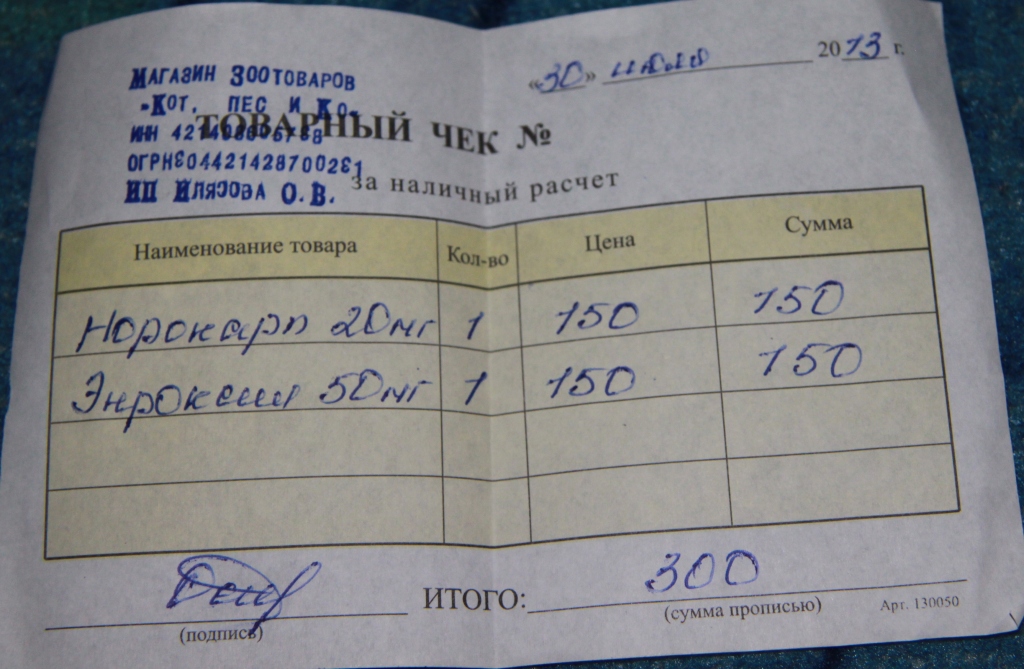 МАГАЗИН ЗООТОВАРОВ
"КОТ, ПЕС И КО"
ИНН
ОГРН304421428700281
ИП ИЛЯСОВА О.В.
«30» июля 2013 г.
ТОВАРНЫЙ ЧЕК №
за наличный расчет
Наименование товара Кол-во Цена Сумма
Норокарп 20мг 1 150 150
Энроксил 50мг 1 150 150
ИТОГО: 300
(подпись) (сумма прописью) Арт. 130050